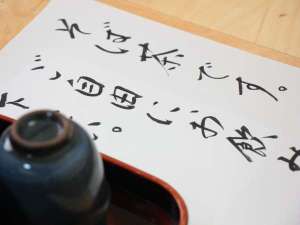 そば茶です。
ご自由にお飲み
い。